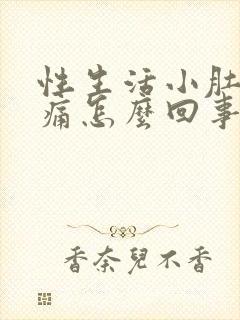 性生活小肚
痛怎麼回事
香奈兒不香